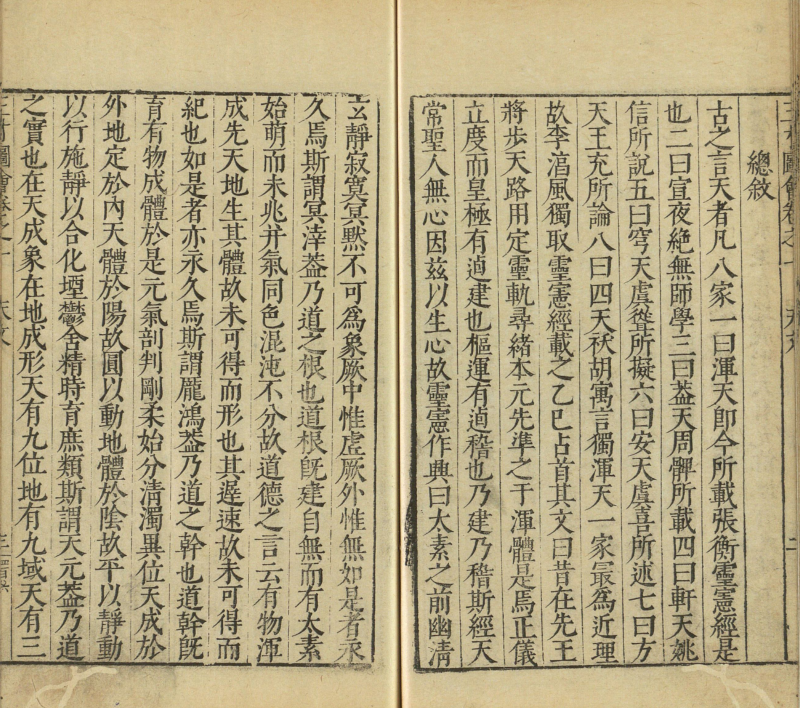 三才圖會卷之一 天文 二
總敘
古之言天者凡八家一曰渾天即今所載張衡靈憲經是
也二曰宣夜絶無師學三曰葢天周髀所載四曰軒天姚
信所說五曰穹天虞聳所擬六曰安天虞喜所述七曰方
天王充所論八曰四天祅胡寓言獨渾天一家最為近理
故李淳風獨取靈憲經載之乙巳占首其文曰昔在先王
將步天路用定靈軌尋緒本元先準之于渾體是爲正儀
立度而皇極有逌建也樞運有逌稽也乃建乃稽斯經天
常聖人無心因茲以生心故靈憲作興曰太素之前幽清
玄靜寂寞冥默不可爲象厥中惟虛厥外惟無如是者永
久焉斯謂冥涬葢乃道之根也道根旣建自無而有太素
始萌而未兆并氣同色混沌不分故道德之言云有物渾
成先天地生其體故未可得而形也其遲速故未可得而
紀也如是者亦永久焉斯謂龎鴻葢乃道之幹也道幹旣
育有物成體於是元氣剖判剛柔始分清濁異位天成於
外地定於內天體於陽故圓以動地體於陰故平以靜動
以行施靜以合化堙鬱舍精時育庶類斯謂天元葢乃道
之實也在天成象在地成形天有九位地有九域天有三
三才圖會卷之一 天文